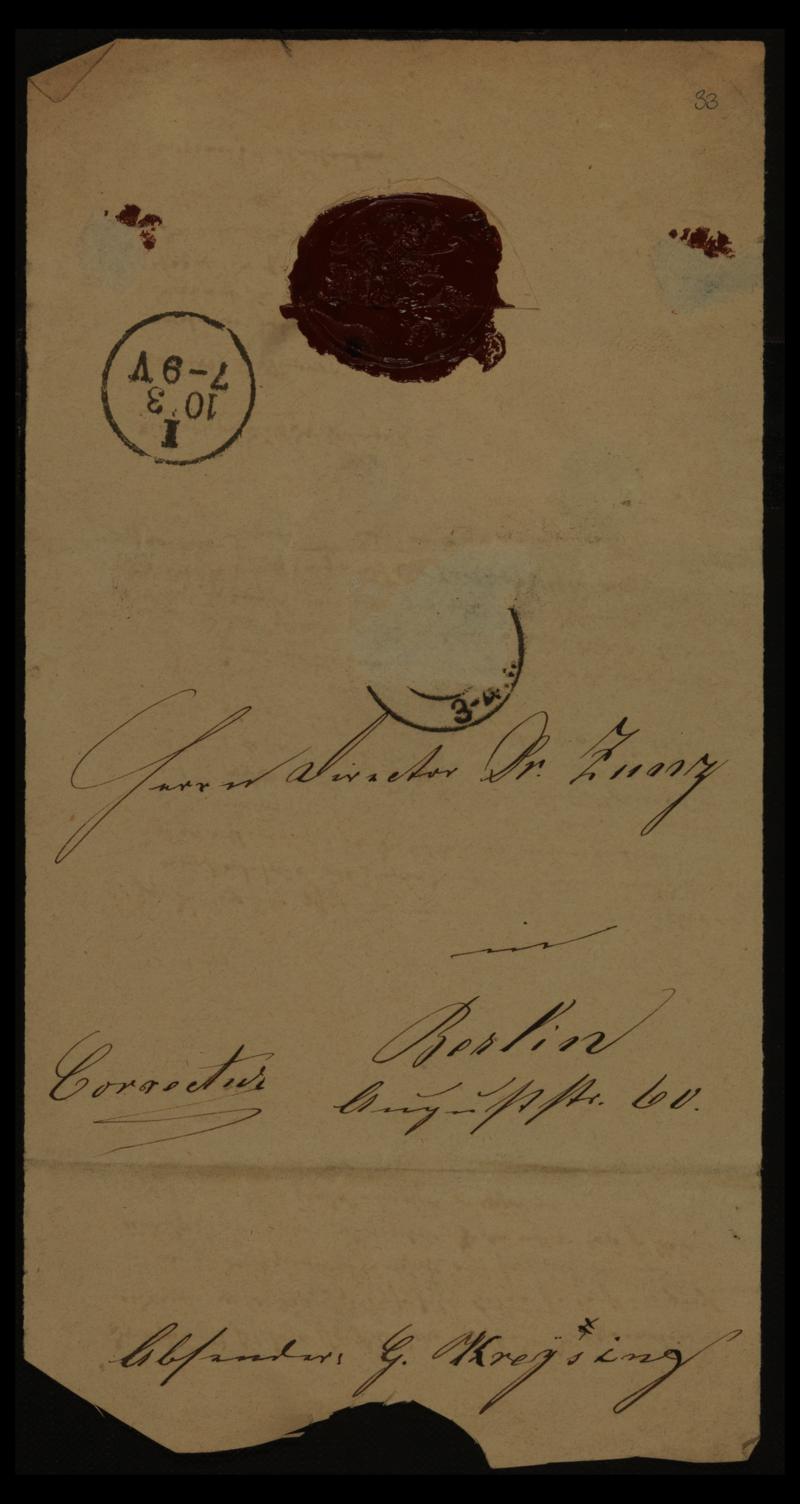 33
7-9 V
10 3
I
3-4
Herrn Director Dr. Zunz
in
Berlin
Correctur
Auguststr. 60.
Absender: G. Kreÿsing